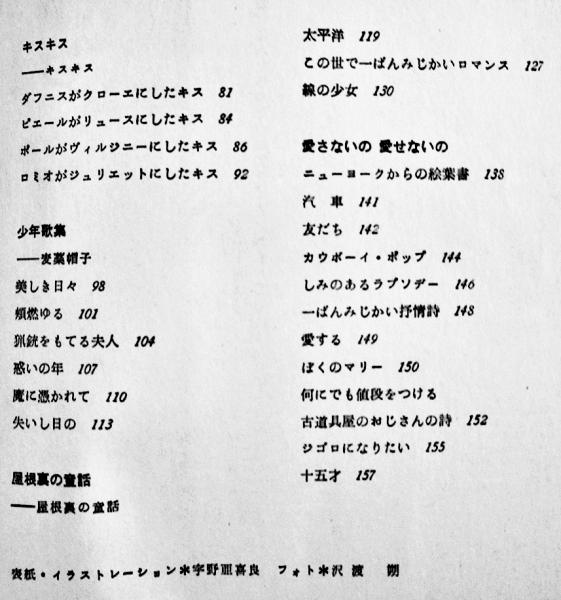 キスキス
――キスキス
ダフニスがクローエにしたキス 81
ピエールがリュースにしたキス 84
ポールがヴィルジニーにしたキス 86
ロミオがジュリエットにしたキス 92
少年歌集
――麦藁帽子
美しき日々 98
頬燃ゆる 101
猟銃をもてる夫人 104
惑いの年 107
魔に憑かれて 110
失いし日の 113
屋根裏の童話
――屋根裏の童話
太平洋 119
この世で一ばんみじかいロマンス 127
線の少女 130
愛さないの 愛せないの
ニューヨークからの絵葉書 138
汽 車 141
友だち 142
カウボーイ・ポップ 144
しみのあるラプソデー 146
一ばんみじかい抒情詩 148
愛する 149
ぼくのマリー 150
何にでも値段をつける
古道具屋のおじさんの詩 152
ジゴロになりたい 155
十五才 157
表紙・イラストレーション＊宇野亜喜良 フォト＊沢渡 朔